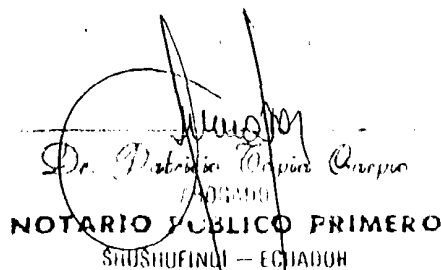 Dr. Patricio Tapia
ABOGADO
NOTARIO PUBLICO PRIMERO
SHUSHUFINDI — ECUADOR